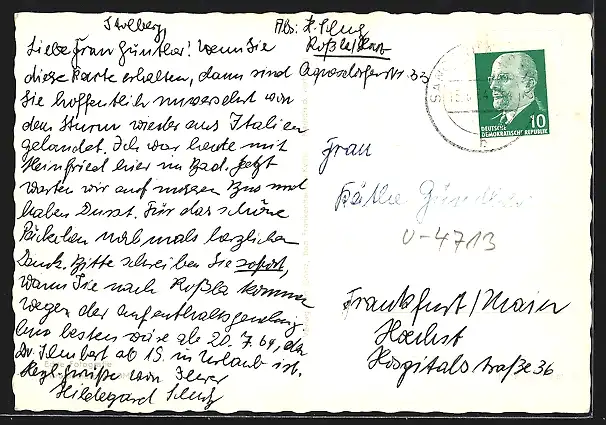 Stolberg,
Liebe Frau Günther! Wenn Sie
diese Karte erhalten, dann sind
Sie hoffentlich unversehrt von
dem Sturm wieder aus Italien
gelandet. Ich war heute mit
Heinfried hier im Bad. Jetzt
warten wir auf unsern Bus und
haben Durst. Für das schöne
Päckchen nochmals herzlichen
Dank. Bitte schreiben Sie sofort,
wann Sie nach Roßla kommen
wegen der Aufenthaltsgenehmig.
Am besten wäre ab 20.7.64, da
Dr. ab 15. in Urlaub ist.
Herzl. Grüße von Ihrer
Hildegard
Abs: H.
Roßla/Harz
Agnesdorferstr. 33
10
DEUTSCHE
DEMOKRATISCHE REPUBLIK
Frau
Käthe Günther
U-4713
Frankfurt/Main
Hoechst
Hospitalstraße 36